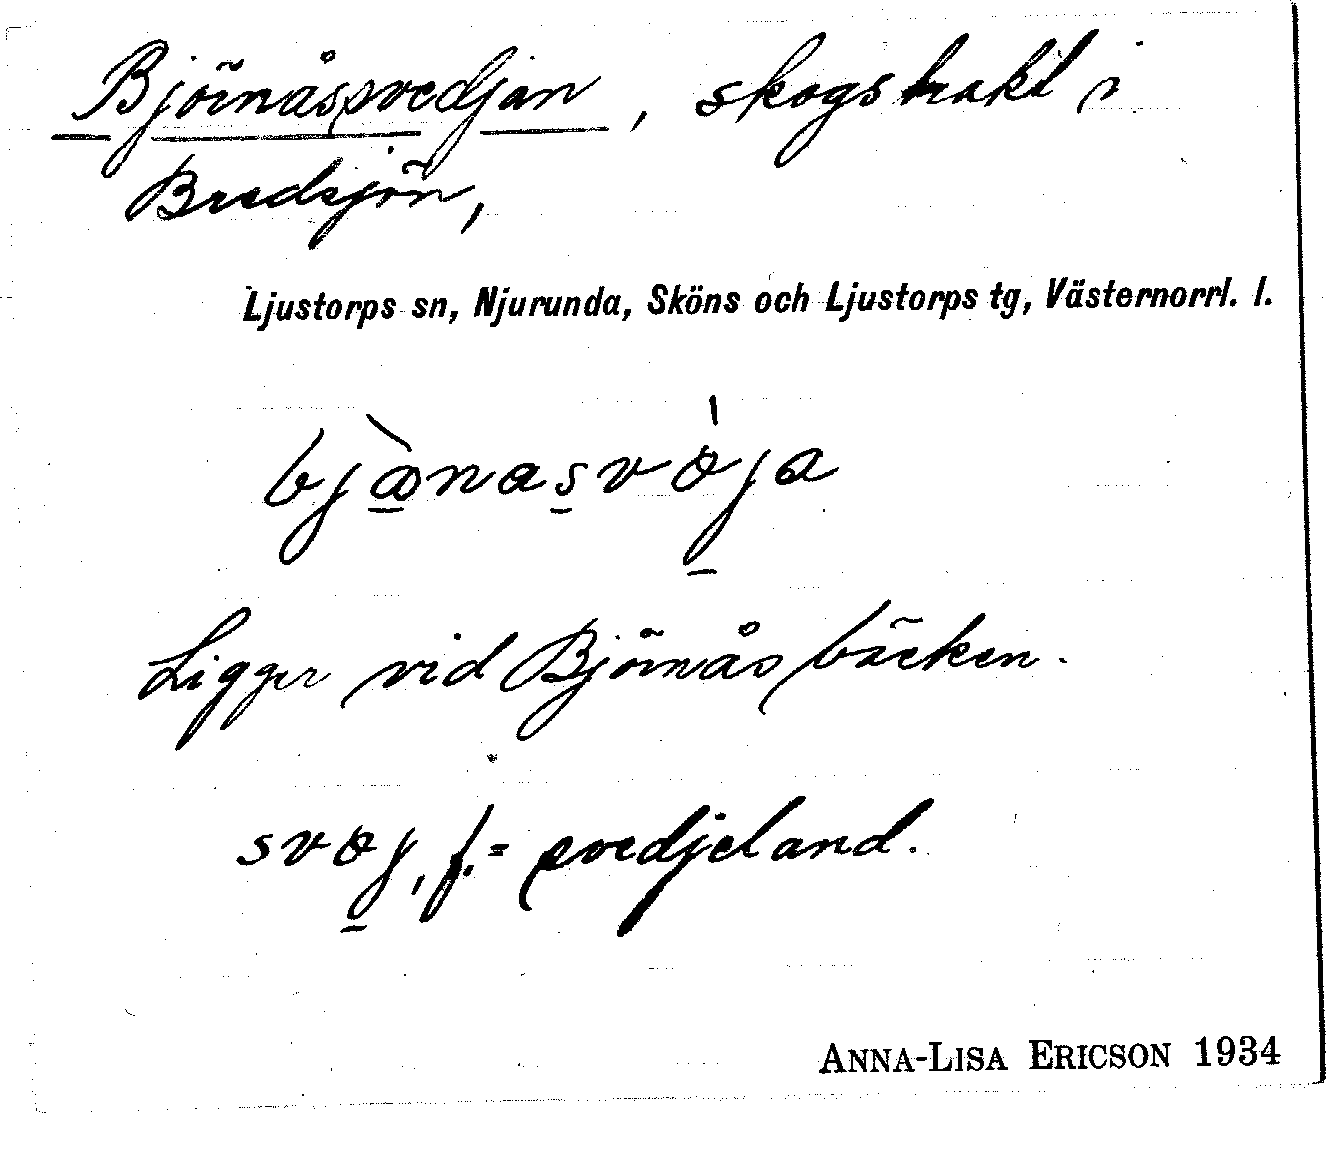 Björnåssvedjan, skogstrakt i
Bredsjön,
Ljustorps sn, Njurunda, Sköns och Ljustorps tg, Västernorrl. l.
Ligger vid Björnåsbäcken.
f. = svedjeland.
ANNA-LISA ERICSON 1934